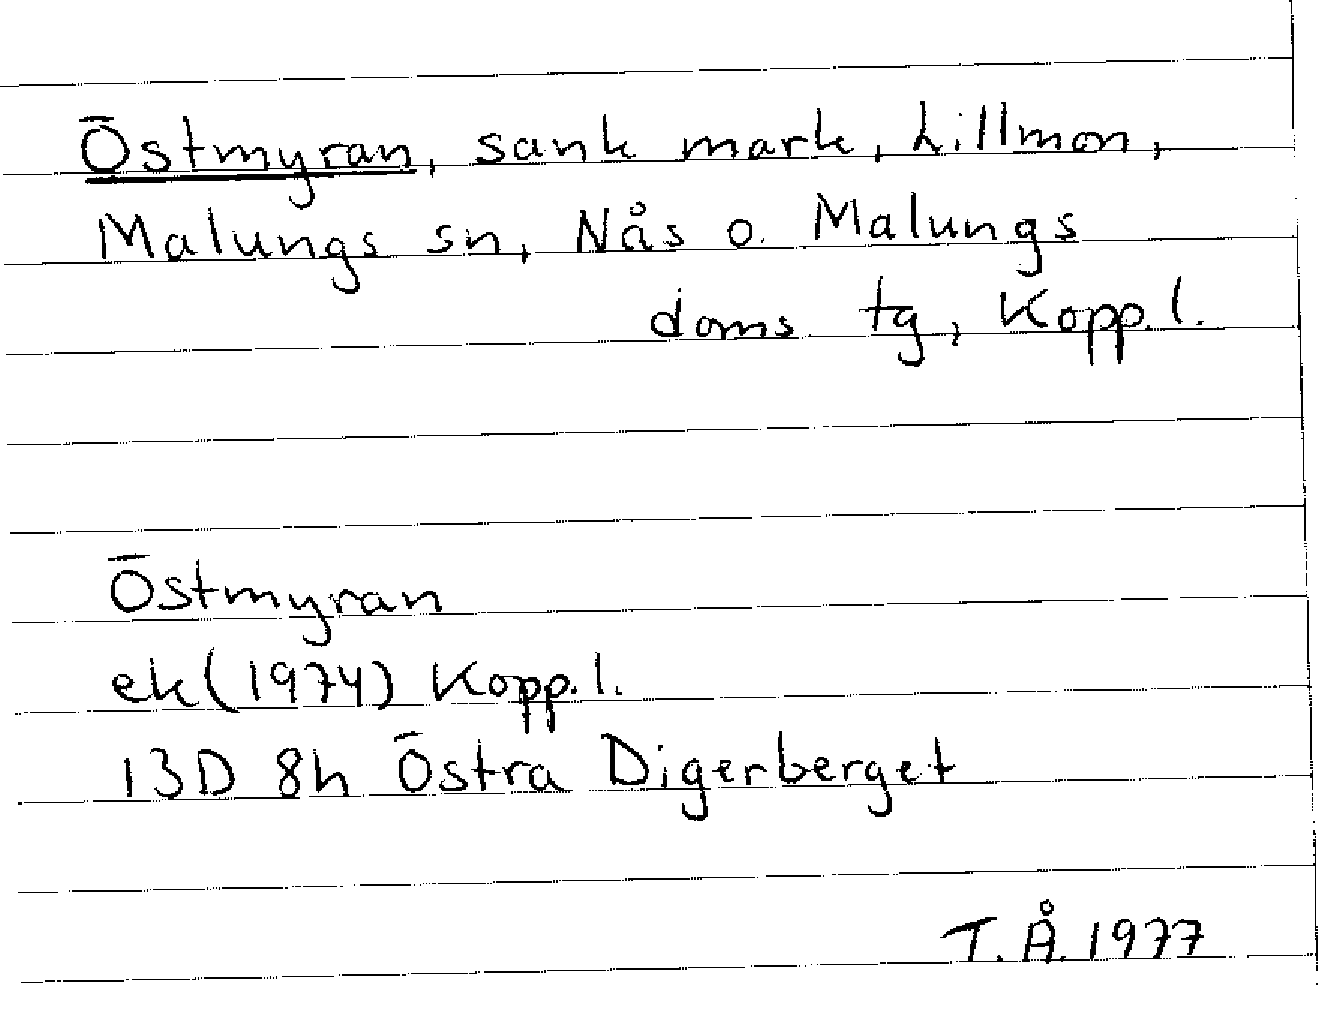 Östmyran, sank mark, Lillmon,
Malungs sn, Nås o. Malungs
doms. tg, Kopp.l.
Östmyran
ek (1974) Kopp.l.
13D 8h Östra Digerberget
T.Å. 1977